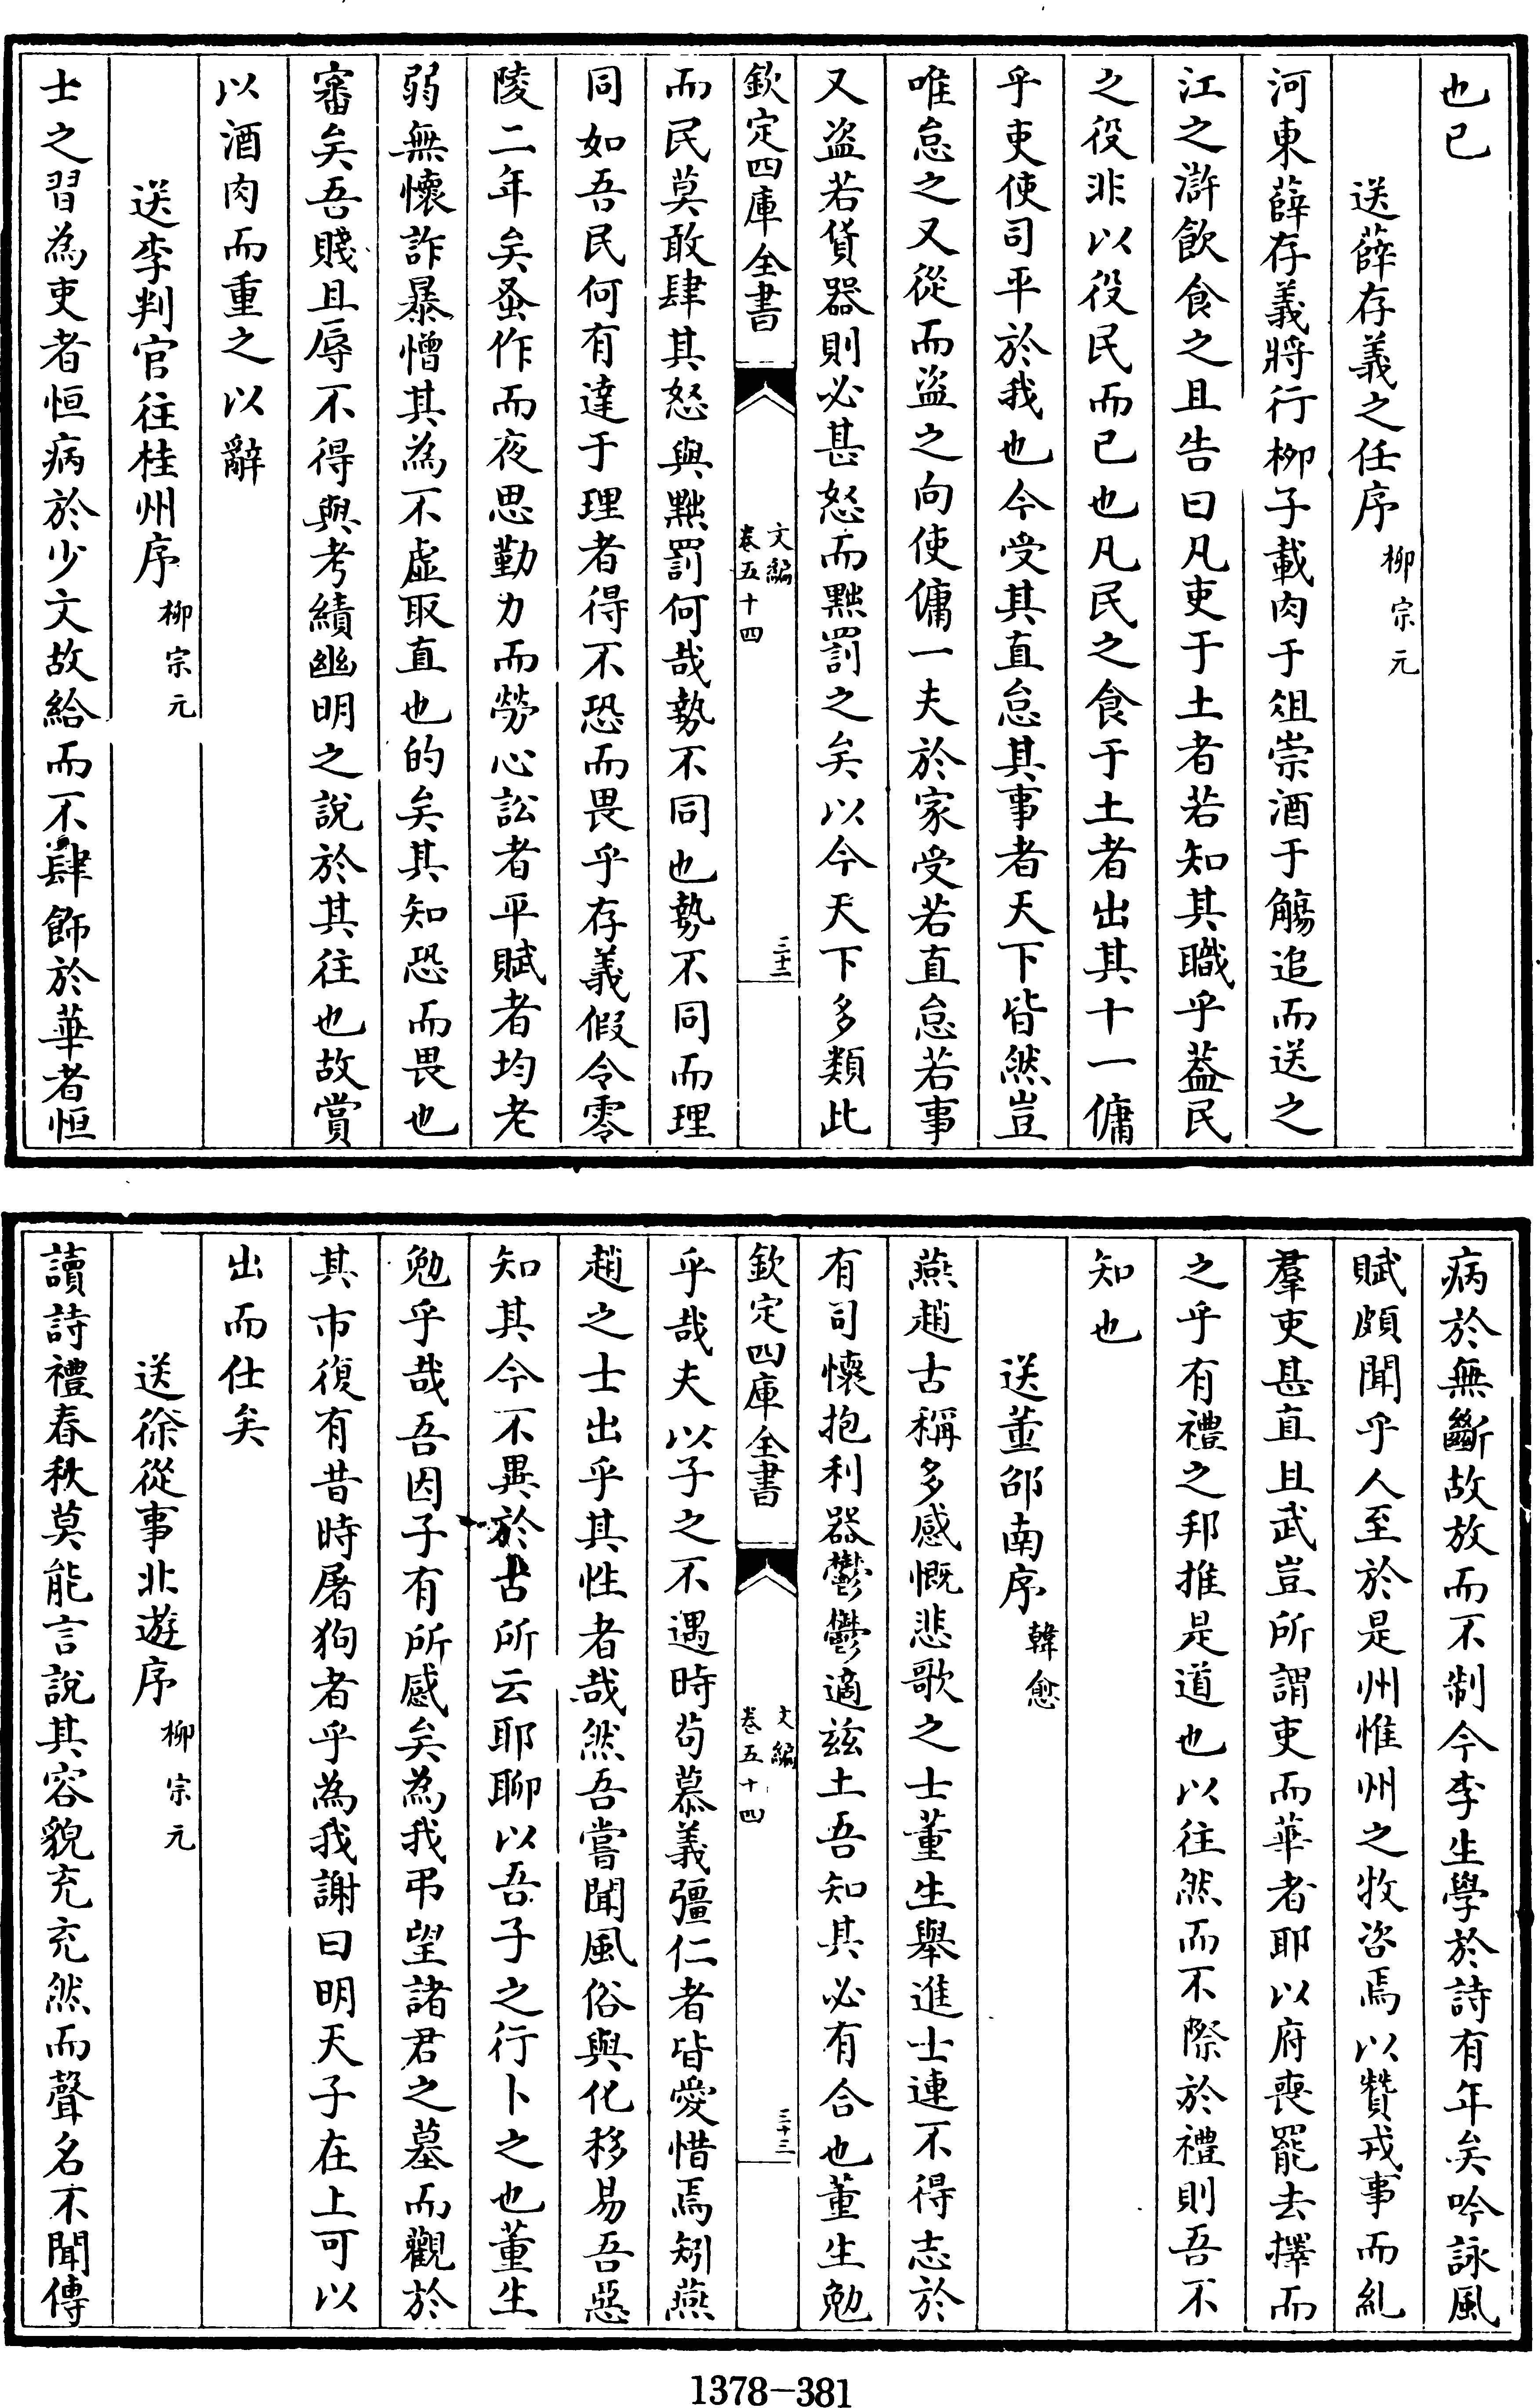 也已
送薛存義之任序柳宗元
河東薛存義將行柳子載肉于俎崇酒于觴追而送之
江之滸飲食之且告曰凡吏于土者若知其職乎蓋民
之役非以役民而已也凡民之食于土者出其十一傭
乎吏使司平於我也今受其直怠其事者天下皆然豈
唯怠之又從而盜之向使傭一夫於家受若直怠若事
又盜若貨器則必甚怒而黜罰之矣以今天下多類此
欽定四庫全書
文編
卷五十四
三十二
而民莫敢肆其怒與黜罰何哉勢不同也勢不同而理
同如吾民何有達于理者得不恐而畏乎存義假令零
陵二年矣蚤作而夜思勤力而勞心訟者平賦者均老
弱無懷詐暴憎其為不虛取直也的矣其知恐而畏也
審矣吾賤且辱不得與考績幽明之說於其往也故賞
以酒肉而重之以辭
送李判官往桂州序柳宗元
士之習為吏者恒病於少文故給而不肆飾於華者恒
病於無斷故放而不制今李生學於詩有年矣吟詠風
賦頗聞乎人至於是州惟州之牧咨焉以贊戎事而糺
羣吏甚直且武豈所謂吏而華者耶以府喪罷去擇而
之乎有禮之邦推是道也以往然而不際於禮則吾不
知也
送董邵南序韓愈
燕趙古稱多感慨悲歌之士董生舉進士連不得志於
有司懷抱利器鬱鬱適兹土吾知其必有合也董生勉
欽定四庫全書
文編
卷五十四
三十三
乎哉夫以子之不遇時茍慕義彊仁者皆愛惜焉矧燕
趙之士出乎其性者哉然吾嘗聞風俗與化移易吾惡
知其今不異於古所云耶聊以吾子之行卜之也董生
勉乎哉吾因子有所感矣為我弔望諸君之墓而觀於
其市復有昔時屠狗者乎為我謝曰明天子在上可以
出而仕矣
送徐從事北遊序柳宗元
讀詩禮春秋莫能言說其容貌充充然而聲名不聞傳
1378—381